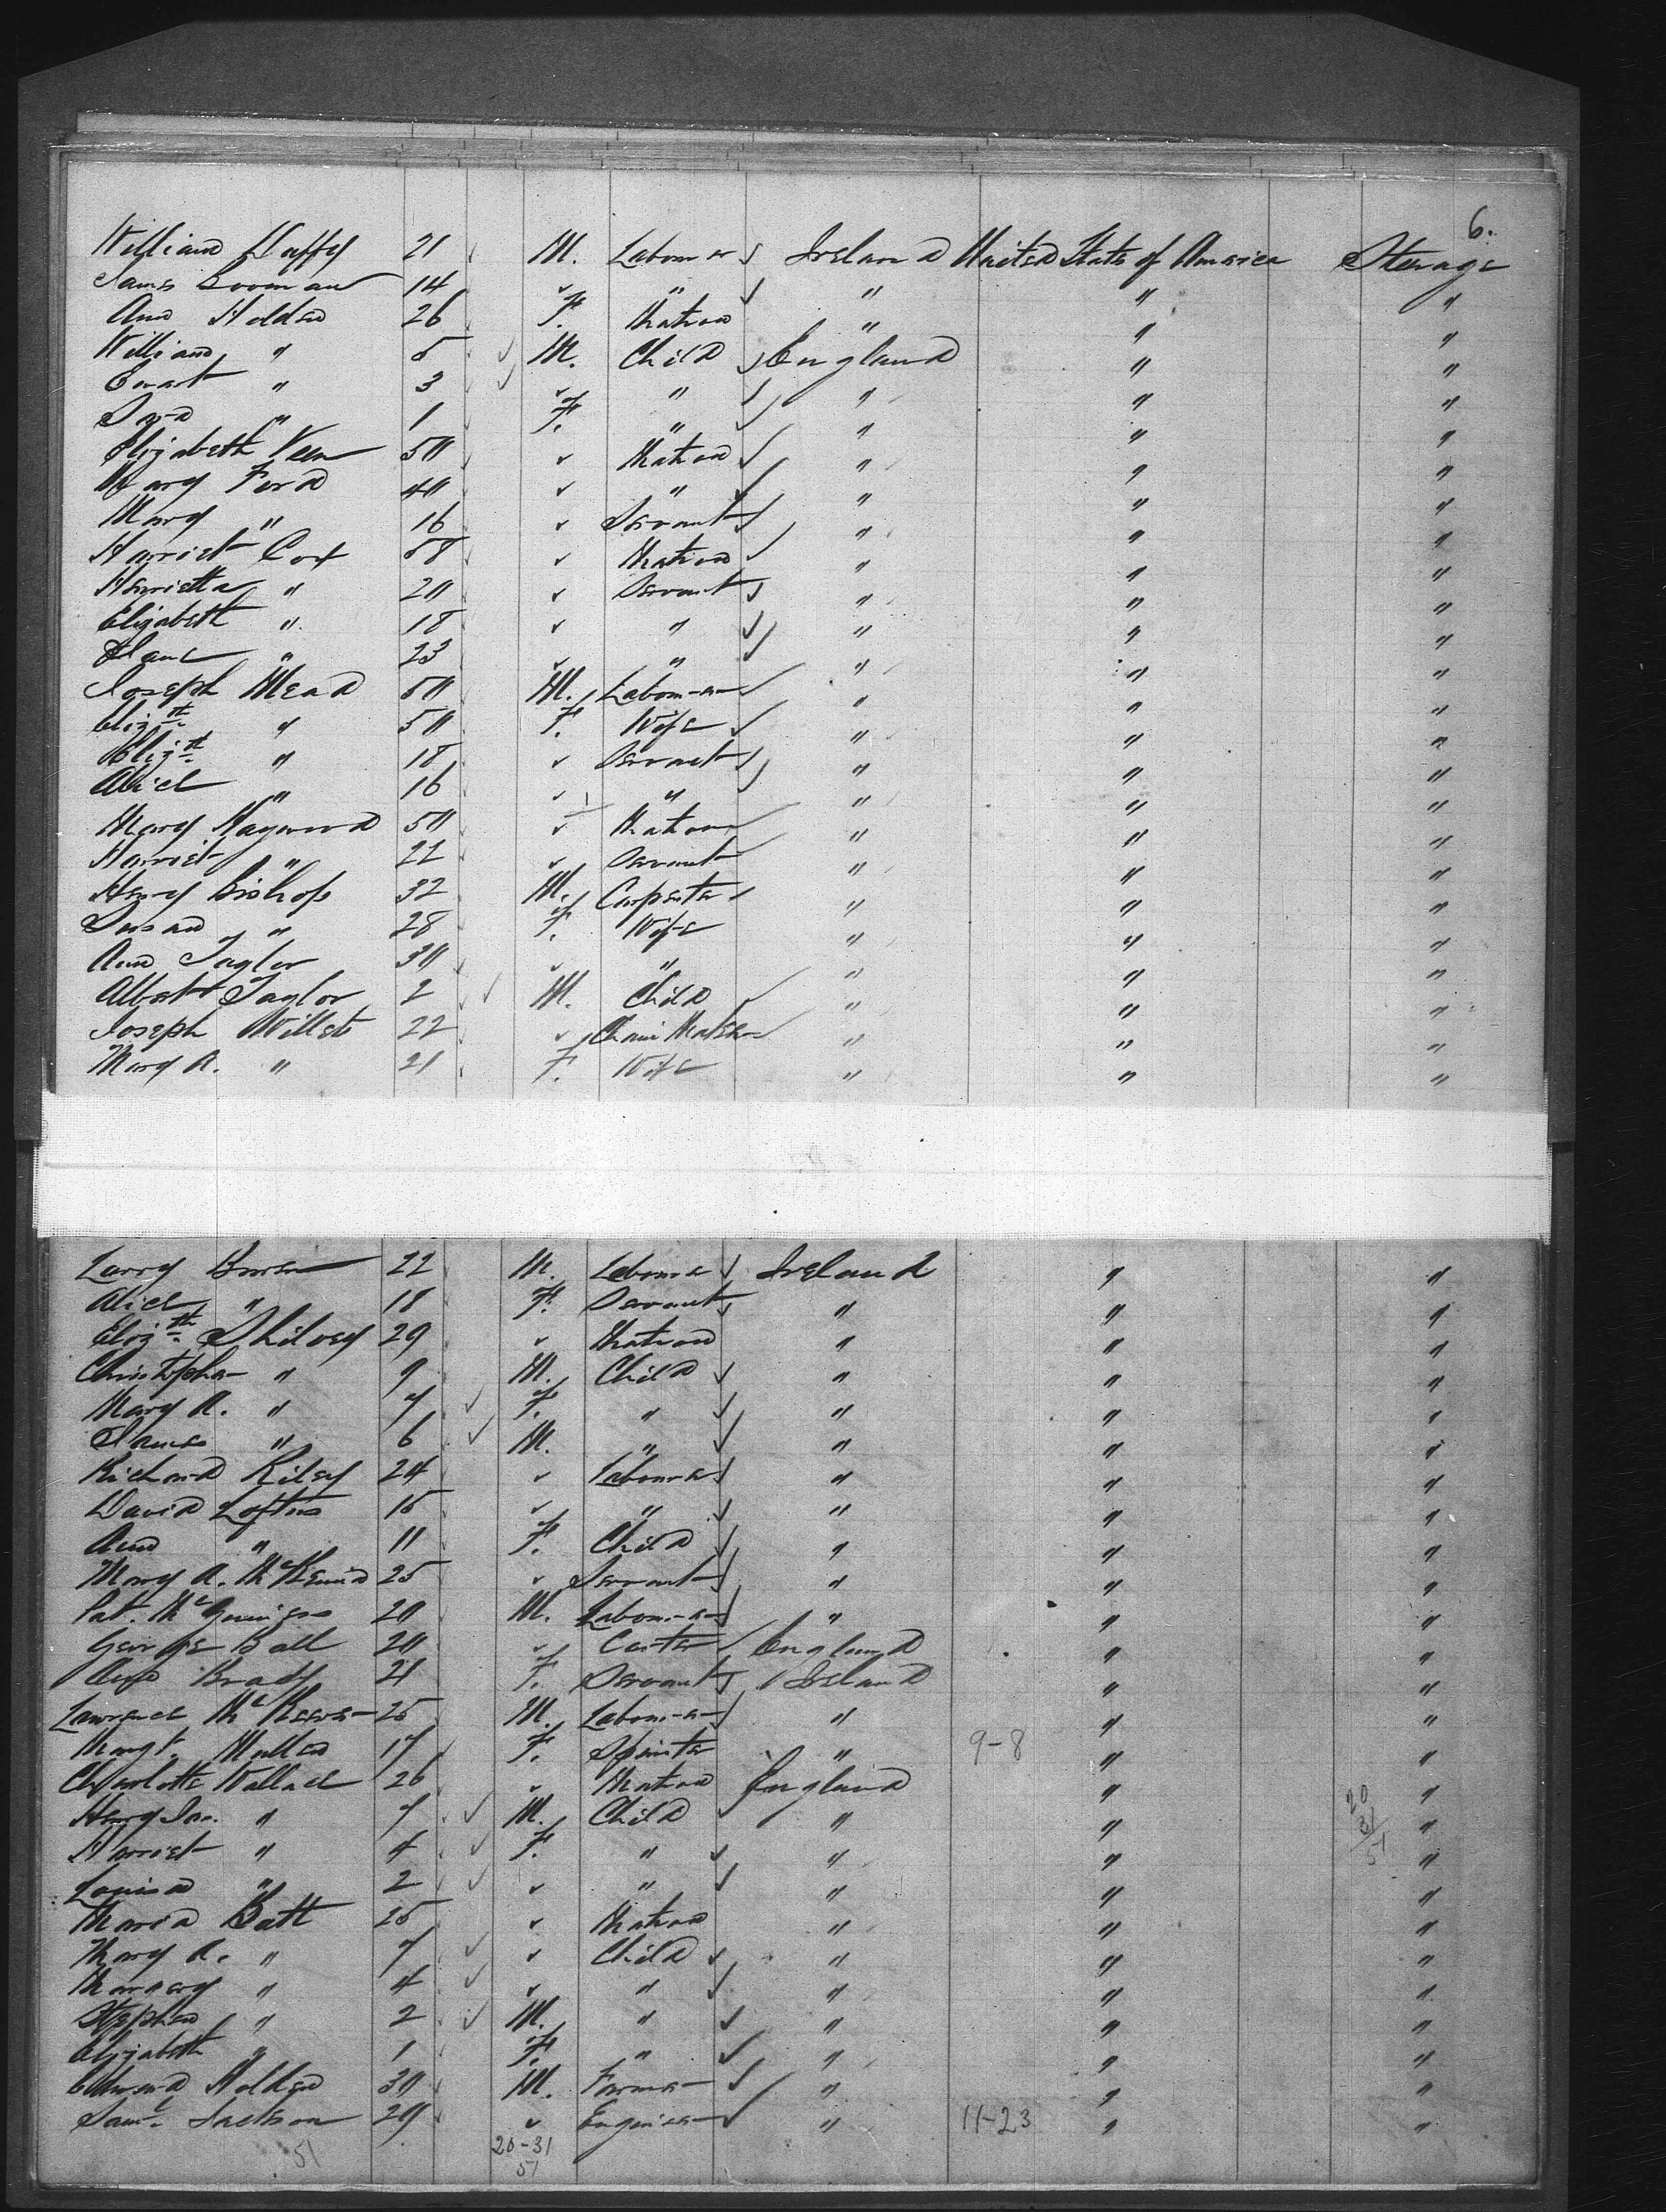 6.
William Daffy 21 M. Labourer Ireland United States of America Steerage
James 14 " " " " "
Ann Holden 26 F. Matron " " "
William " 5 M. Child England " "
Ewart " 3 " " " " "
" 1 F. " " " "
Elizabeth 50 " Matron " " "
Mary Ford 40 " " " " "
Mary " 16 " Servant " " "
Harriet Cox 58 " Matron " " "
Henrietta " 20 " Servant " " "
Elizabeth " 18 " " " " "
Jane " 23 " " " " "
Joseph Mead 50 M. Labourer " " "
Elizth " 50 F. Wife " " "
Elizth " 18 " Servant " " "
Alice " 16 " " " " "
Mary Haywood 50 " Matron " " "
Harriet " 22 " Servant " " "
Henry Bishop 32 M. Carpenter " " "
Susan " 28 F. Wife " " "
Ann Taylor 30 " " " " "
Albert Taylor 2 M. Child " " "
Joseph Willets 22 " Chair Maker " " "
Mary A. " 21 F. Wife " " "
Larry 22 M. Labourer Ireland " "
Alice " 18 F. Servant " " "
Elizth Shilvey 29 " Matron " " "
Christopher " 9 M. Child " " "
Mary A. " 7 F. " " " "
James " 6 M. " " " "
Richard Riley 24 " Labourer " " "
David Loftus 15 " " " " "
Ann " 11 F. Child " " "
Mary A. McKenna 25 " Servant " " "
Pat. McGuiness 20 M. Labourer " " "
George Ball 20 " Carter England " "
Ann Brady 21 F. Servant Ireland " "
Lawrence 25 M. Labourer " " "
Margt. Mullen 17 F. Spinster " 9-8 " "
Charlotte Wallace 26 " Matron England " "
Henry Jas. " 7 M. Child " " 20 31 51 "
Harriet " 4 F. " " " "
Louisa " 2 " " " " "
Maria Batt 25 " Matron " " "
Mary A. " 7 " Child " " "
Margery " 4 " " " " "
Stephen " 2 M. " " " "
Elizabeth " 1 F. " " " "
Edward Holden 30 M. Farmer " " "
Saml. Jackson 29 " Engineer " 11-23 " "
51 20-31
51